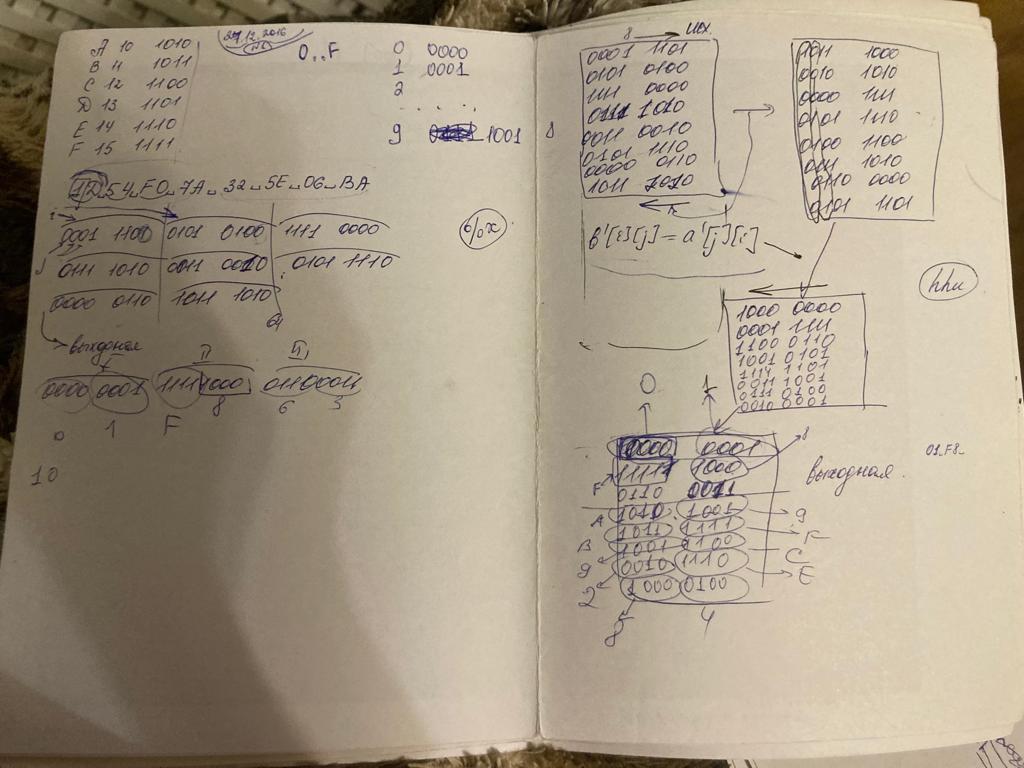 27.12.2016
A 10 1010
B 11 1011
C 12 1100
D 13 1101
E 14 1110
F 15 1111
0..F
0 0000
1 0001
2
. . . . .
9 1001
12 54 F0 7A 32 5E 06 BA
0001 1100 0101 0100 1111 0000
0111 1010 0011 0010 0101 1110
0000 0110 1011 1010
64
выходная
0000 0001 1111 1000 0110 0011
0 1 F 8 6 3
10
%x
8 исх.
8
0001 1101
0101 0100
1111 0000
0111 1010
0011 0010
0101 1110
0000 0110
1011 1010
0011 1000
0010 1010
0000 1111
0101 1110
0100 1100
1010
0110 0000
0101 1101
b'[i][j] = a'[j][i]
hhu
1000 0000
0001 1111
1100 0110
1001 0101
1111 1101
0011 1001
0111 0100
0010 0001
0 1
0000 0001 1
F 1111 1000 8
0110 0011
A 1010 1001 9
B 1011 1111 F
9 1001 1100 C
2 0010 1110 E
1000 0100
8 4
выходная
01_F8_